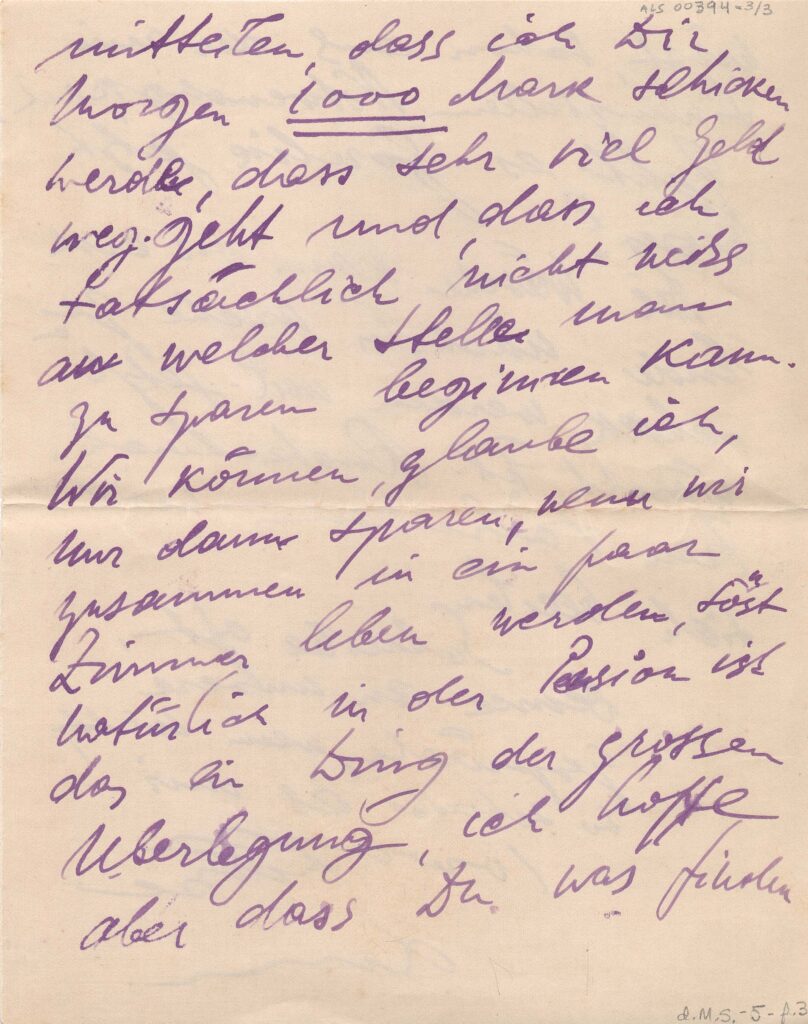 ALS 00394-3/3
mitteilen, dass ich Dir
morgen 1000 Mark schicken
werde, dass sehr viel Geld
weg geht und, dass ich
tatsächlich nicht weiss
an welcher Stelle man
zu sparen beginnen kann.
Wir können, glaube ich,
nur dann sparen, wenn wir
zusammen in ein paar
Zimmer leben werden,
natürlich in der Pension ist
das ein Ding der grossen
Überlegung, ich hoffe
aber dass Du was finden
d.M.S.-5-f.3